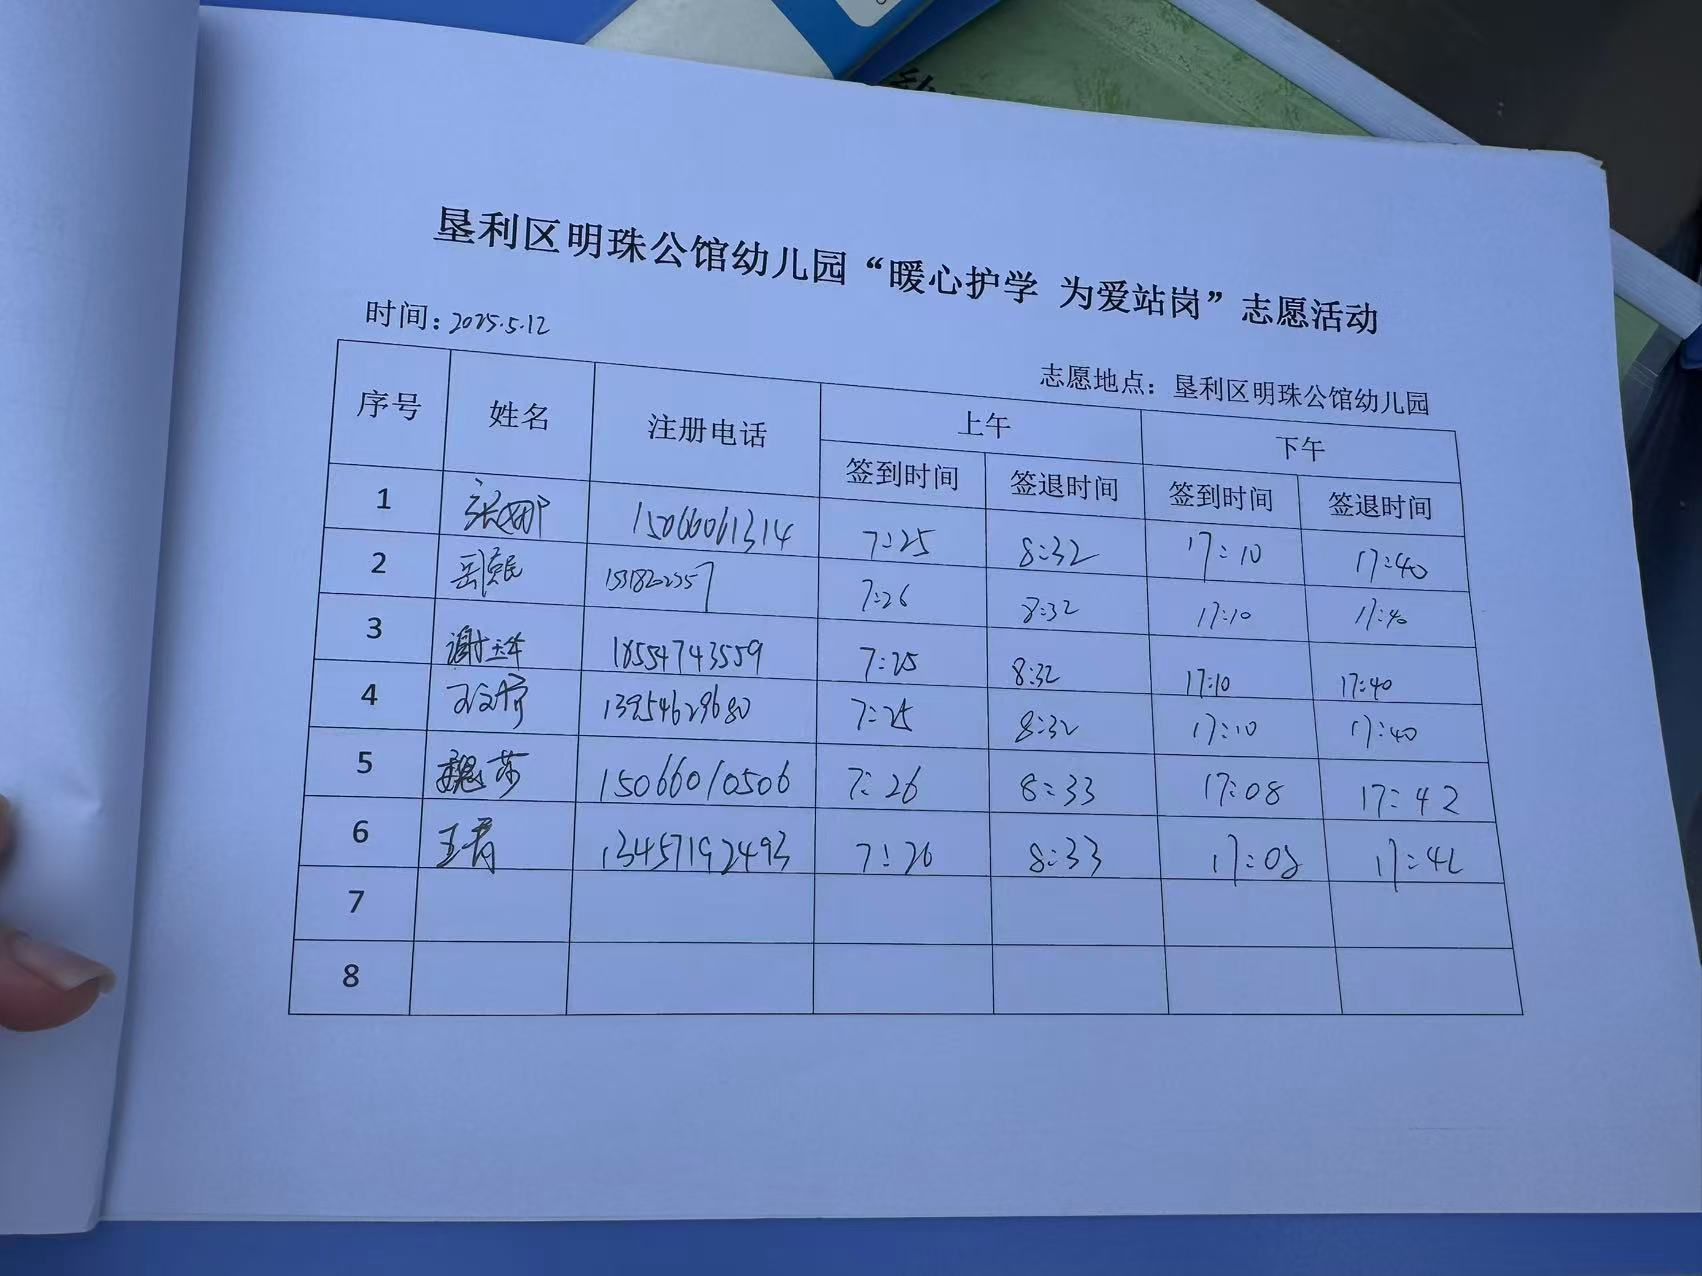 垦利区明珠公馆幼儿园“暖心护学 为爱站岗”志愿活动
时间：2025.5.12
志愿地点：垦利区明珠公馆幼儿园
序号 姓名 注册电话 上午 下午
签到时间 签退时间 签到时间 签退时间
1 张娜 15066061314 7:25 8:32 17:10 17:40
2 7:26 8:32 17:10 17:40
3 18554743559 7:25 8:32 17:10 17:40
4 13954629680 7:25 8:32 17:10 17:40
5 魏莎 15066010506 7:26 8:33 17:08 17:42
6 王青 13457192493 7:26 8:33 17:08 17:42
7
8